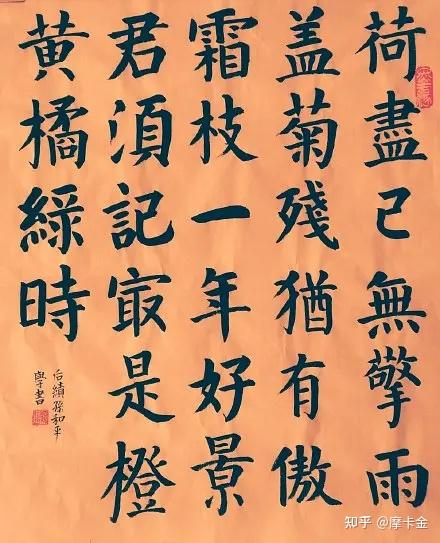 荷盡已無擎雨
盖菊殘猶有傲
霜枝一年好景
君湏記㝡是橙
黄橘綠時
孫和平
學書
知乎 @摩卡金